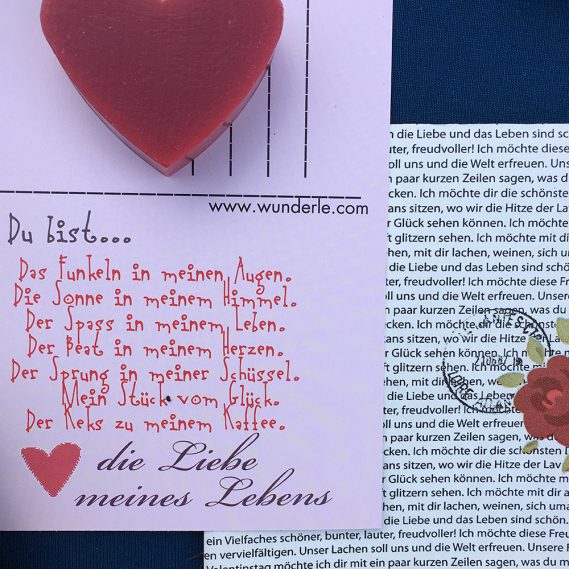 www.wunderle.com
Du bist...
Das Funkeln in meinen Augen.
Die Sonne in meinem Himmel.
Der Spass in meinem Leben.
Der Beat in meinem Herzen.
Der Sprung in meiner Schüssel.
Mein Stück vom Glück.
Der Keks zu meinem Kaffee.
die Liebe
meines Lebens
die Liebe und das Leben sind
freudvoller! Ich möchte diese
uns und die Welt erfreuen.
ein paar kurzen Zeilen sagen, was
Ich möchte dir die schönsten
sitzen, wo wir die Hitze der
Glück sehen können. Ich möchte
glitzern sehen. Ich möchte mit
mit dir lachen, weinen, sich
die Liebe und das Leben sind
freudvoller! Ich möchte diese
soll uns und die Welt erfreuen.
ein paar kurzen Zeilen sagen, was
Ich möchte dir
sitzen, wo wir die Hitze
Glück sehen können. Ich
glitzern sehen. Ich
mit dir lachen,
die Liebe und das Leben
freudvoller! Ich möchte
uns und die Welt
paar kurzen Zeilen sagen, was
Ich möchte dir die schönsten
sitzen, wo wir die Hitze der
Glück sehen können. Ich möchte
glitzern sehen. Ich möchte mit dir
mit dir lachen, weinen, sich
die Liebe und das Leben sind schön.
ein Vielfaches schöner, bunter, lauter, freudvoller! Ich möchte diese
vervielfältigen. Unser Lachen soll uns und die Welt erfreuen. Unsere
Valentinstag möchte ich dir mit ein paar kurzen Zeilen sagen, was